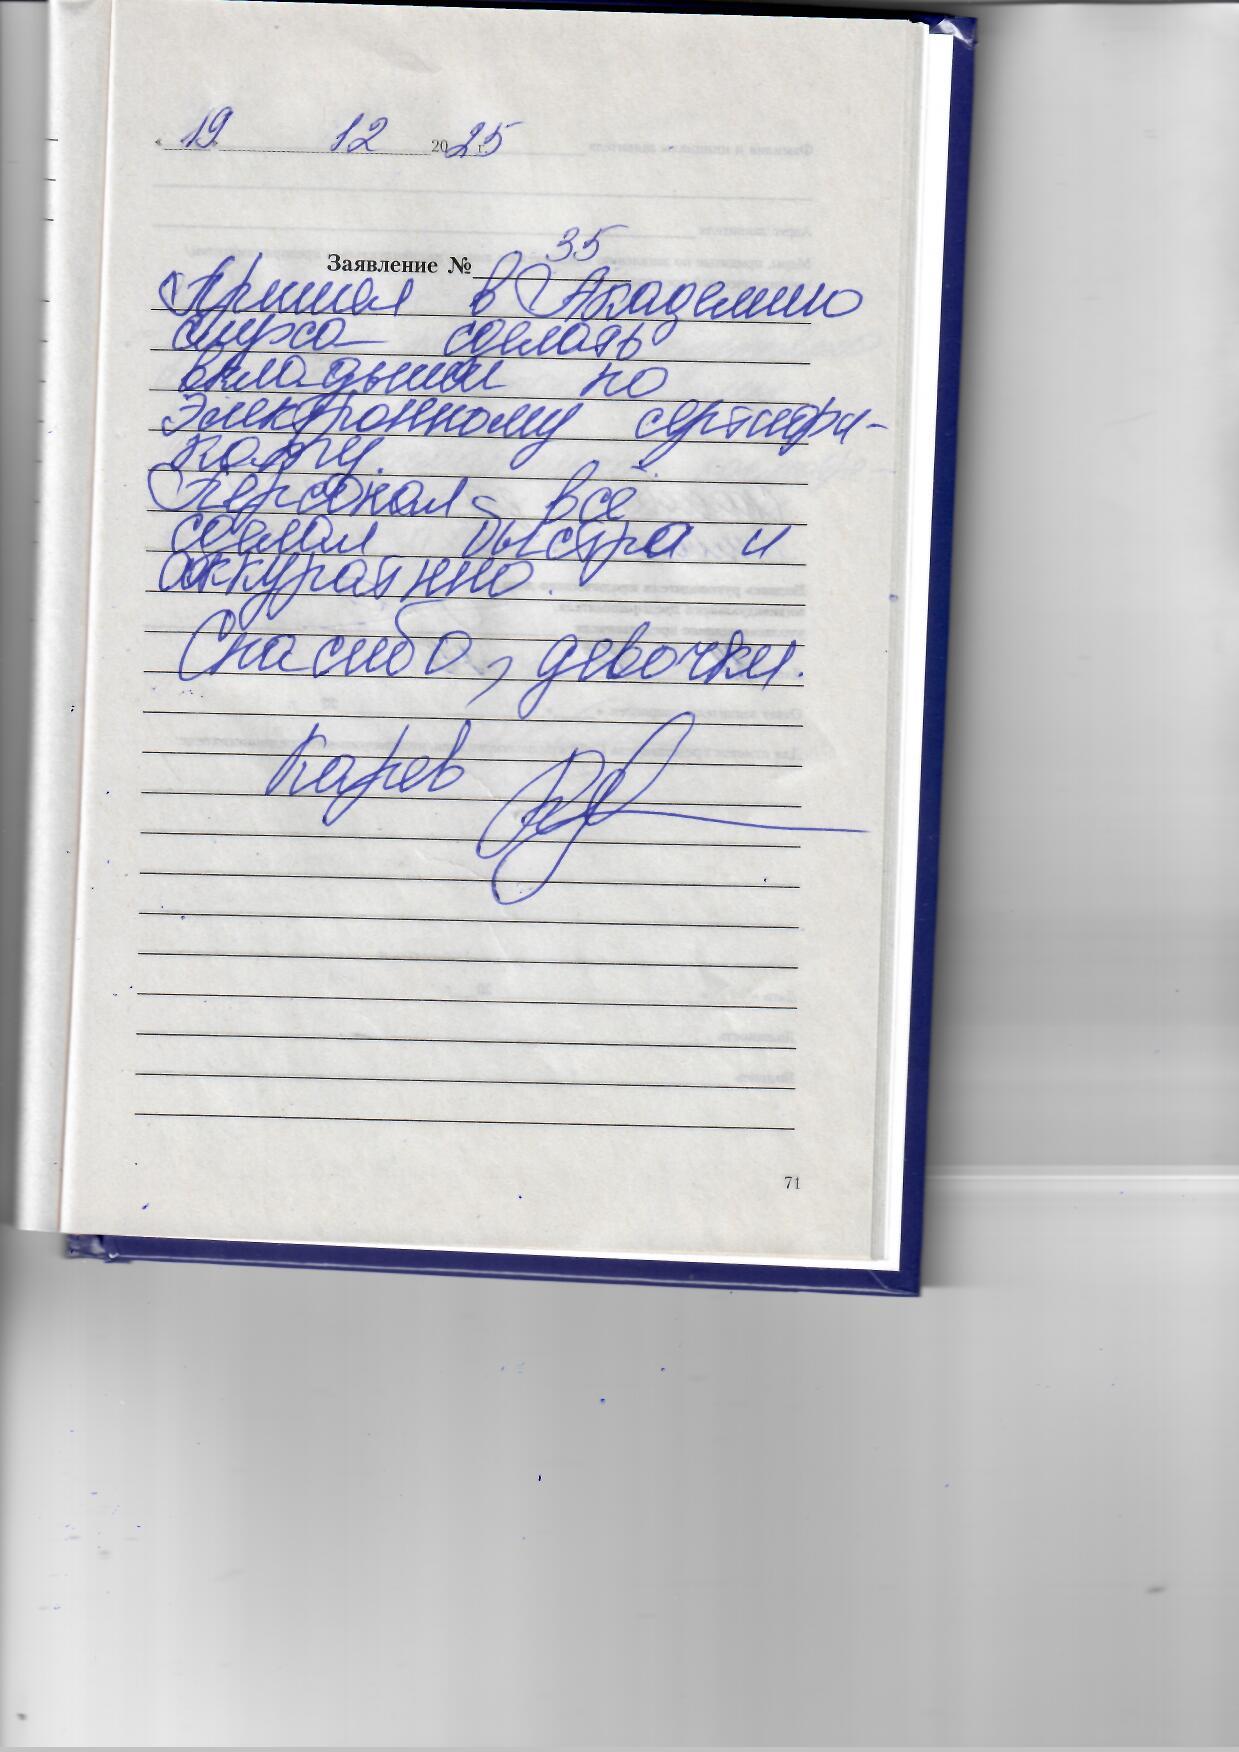 « 19 » 12 2025 г.
Заявление № 35
Пришел в Академию
слуха сделать
вкладыши по
электронному сертифи-
кату.
Персонал всё
сделал быстра и
аккуратнно.
Спасибо, девочки.
Карев
71